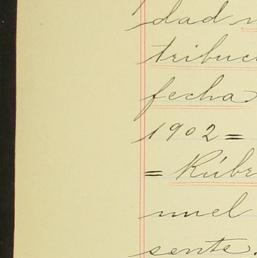 dad
tribuc
fecha
1902=
= Rúbe
nuel
sente.